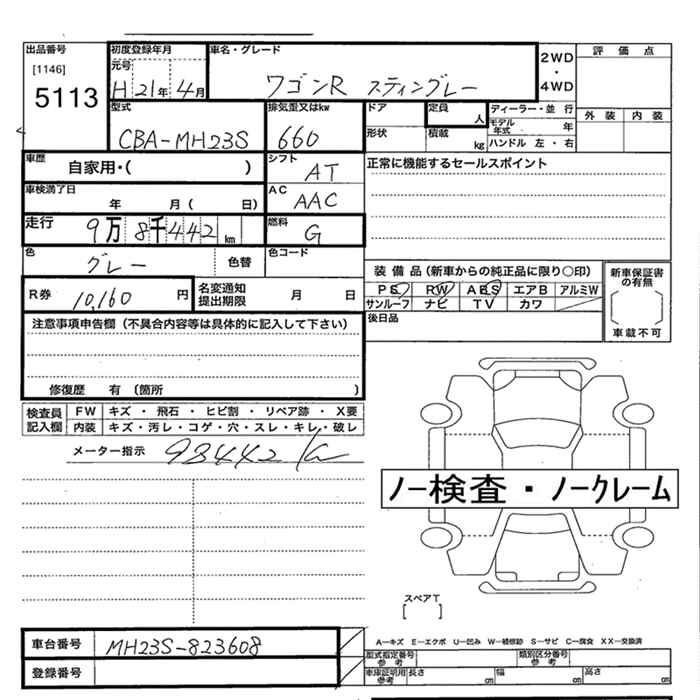 出品番号
[1146]
5113
初度登録年月
元号
H 21 年 4 月
車名・グレード
ワゴンR スティングレー
2WD
・
4WD
評価点
外装 内装
型式
CBA-MH23S
排気歪又はkw
660
ドア
形状
定員
人
積載
kg
ディーラー・並行
モデル年式 年
ハンドル 左・右
車歴
自家用・( )
シフト
AT
正常に機能するセールスポイント
車検満了日
年 月( 日)
AC
AAC
走行
9万8千442km
燃料
G
色
グレー
色替
色コード
R券
10,160円
名変通知
提出期限
月 日
装備品(新車からの純正品に限り○印)
PS RW ABS エアB アルミW
サンルーフ ナビ TV カワ
新車保証書
の有無
車載不可
後日品
注意事項申告欄(不具合内容等は具体的に記入して下さい)
修復歴 有 (箇所 )
検査員
記入欄
FW キズ・飛石・ヒビ割・リペア跡・X要
内装 キズ・汚レ・コゲ・穴・スレ・キレ・破レ
メーター指示
98442 km
ノー検査・ノークレーム
スペアT
[ ]
車台番号
MH23S-823608
登録番号
A−キズ E−エクボ U−凹み W−補修跡 S−サビ C−腐食 XX−交換済
型式指定番号
参考
類別区分番号
参考
車庫証明用
参考
長さ cm
幅 cm
高さ cm